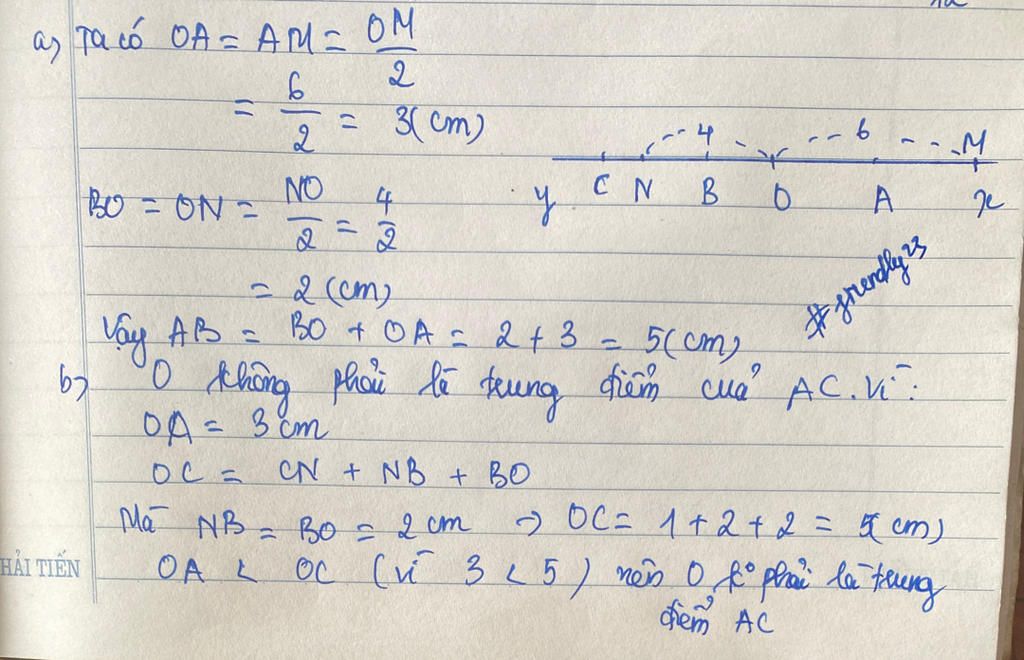 a) Ta có OA = AM = OM/2
= 6/2 = 3(cm)
4 6 M
y C N B O A x
BO = ON = NO/2 = 4/2
= 2 (cm)
#friendly23
Vậy AB = BO + OA = 2 + 3 = 5(cm)
b) O không phải là trung điểm của AC. Vì:
OA = 3 cm
OC = CN + NB + BO
Mà NB = BO = 2 cm → OC = 1 + 2 + 2 = 5(cm)
OA < OC (vì 3 < 5) nên O k° phải là trung
điểm AC
HẢI TIẾN